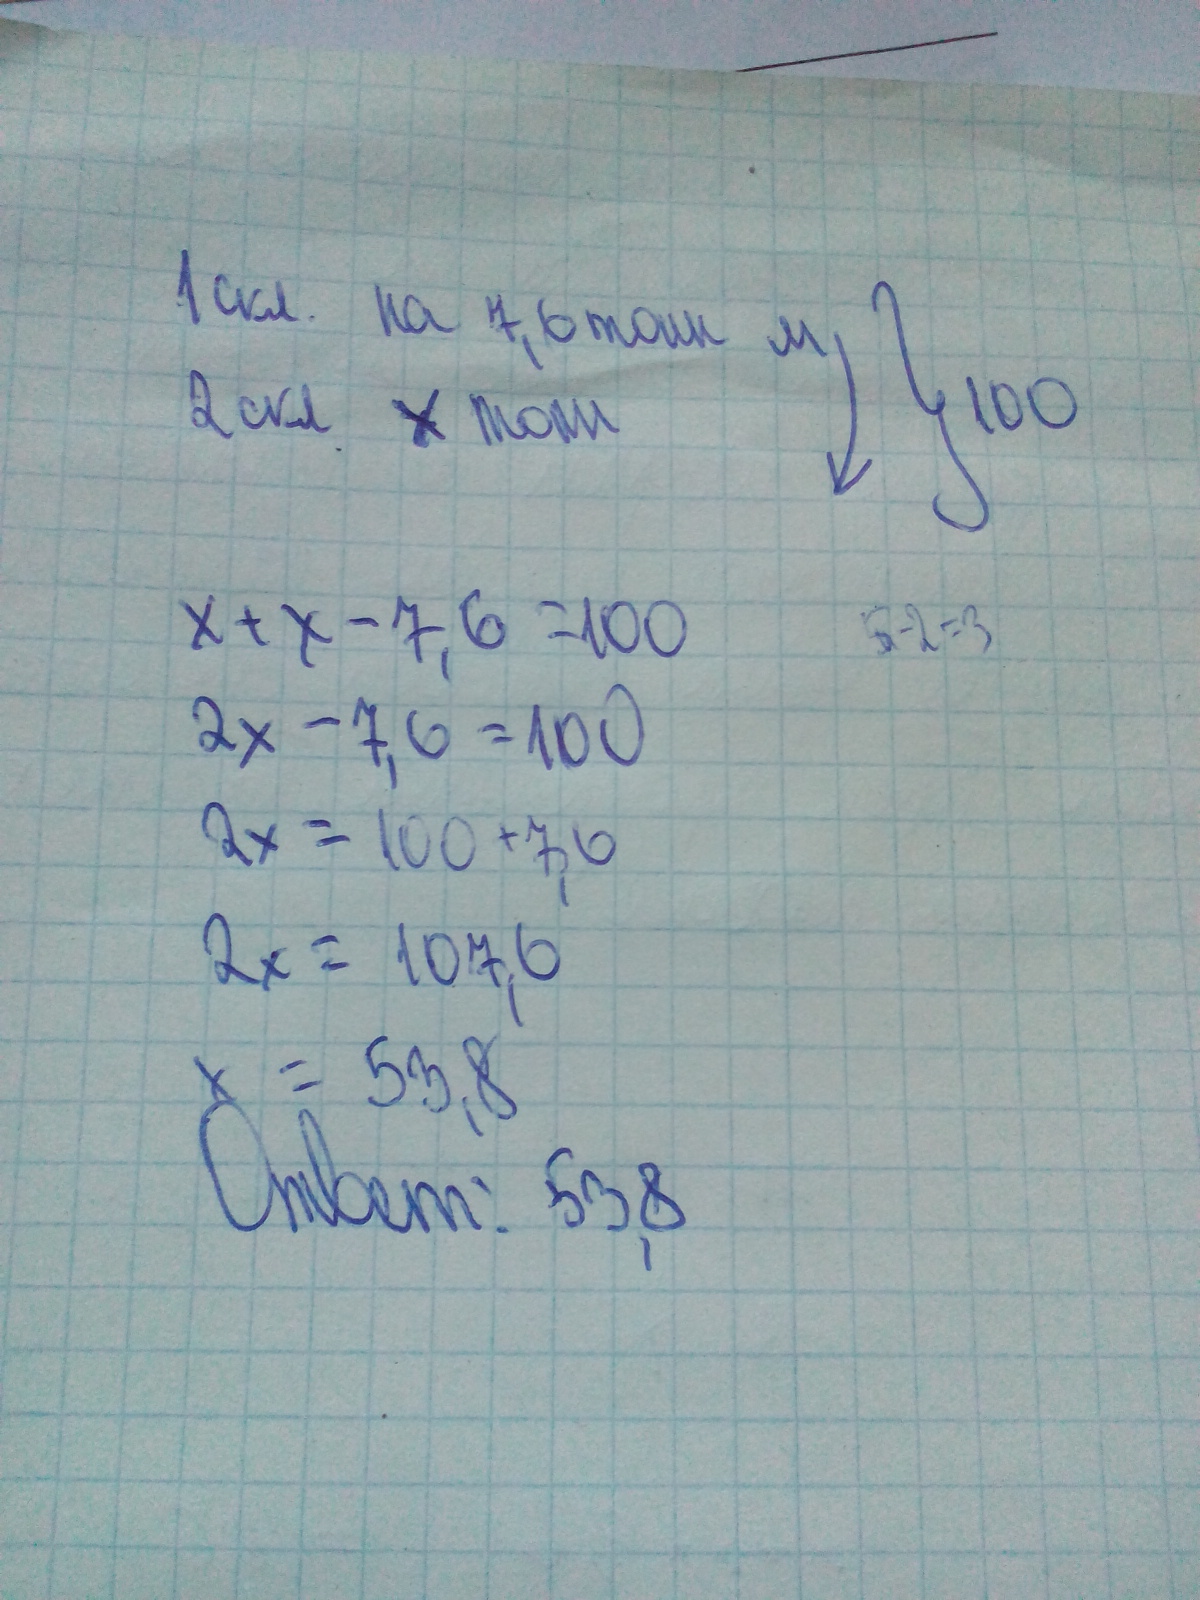 1 скл. на 7,6 тонн м
2 скл. x тонн
100
x + x - 7,6 = 100
5-2=3
2x - 7,6 = 100
2x = 100 + 7,6
2x = 107,6
x = 53,8
Ответ: 53,8